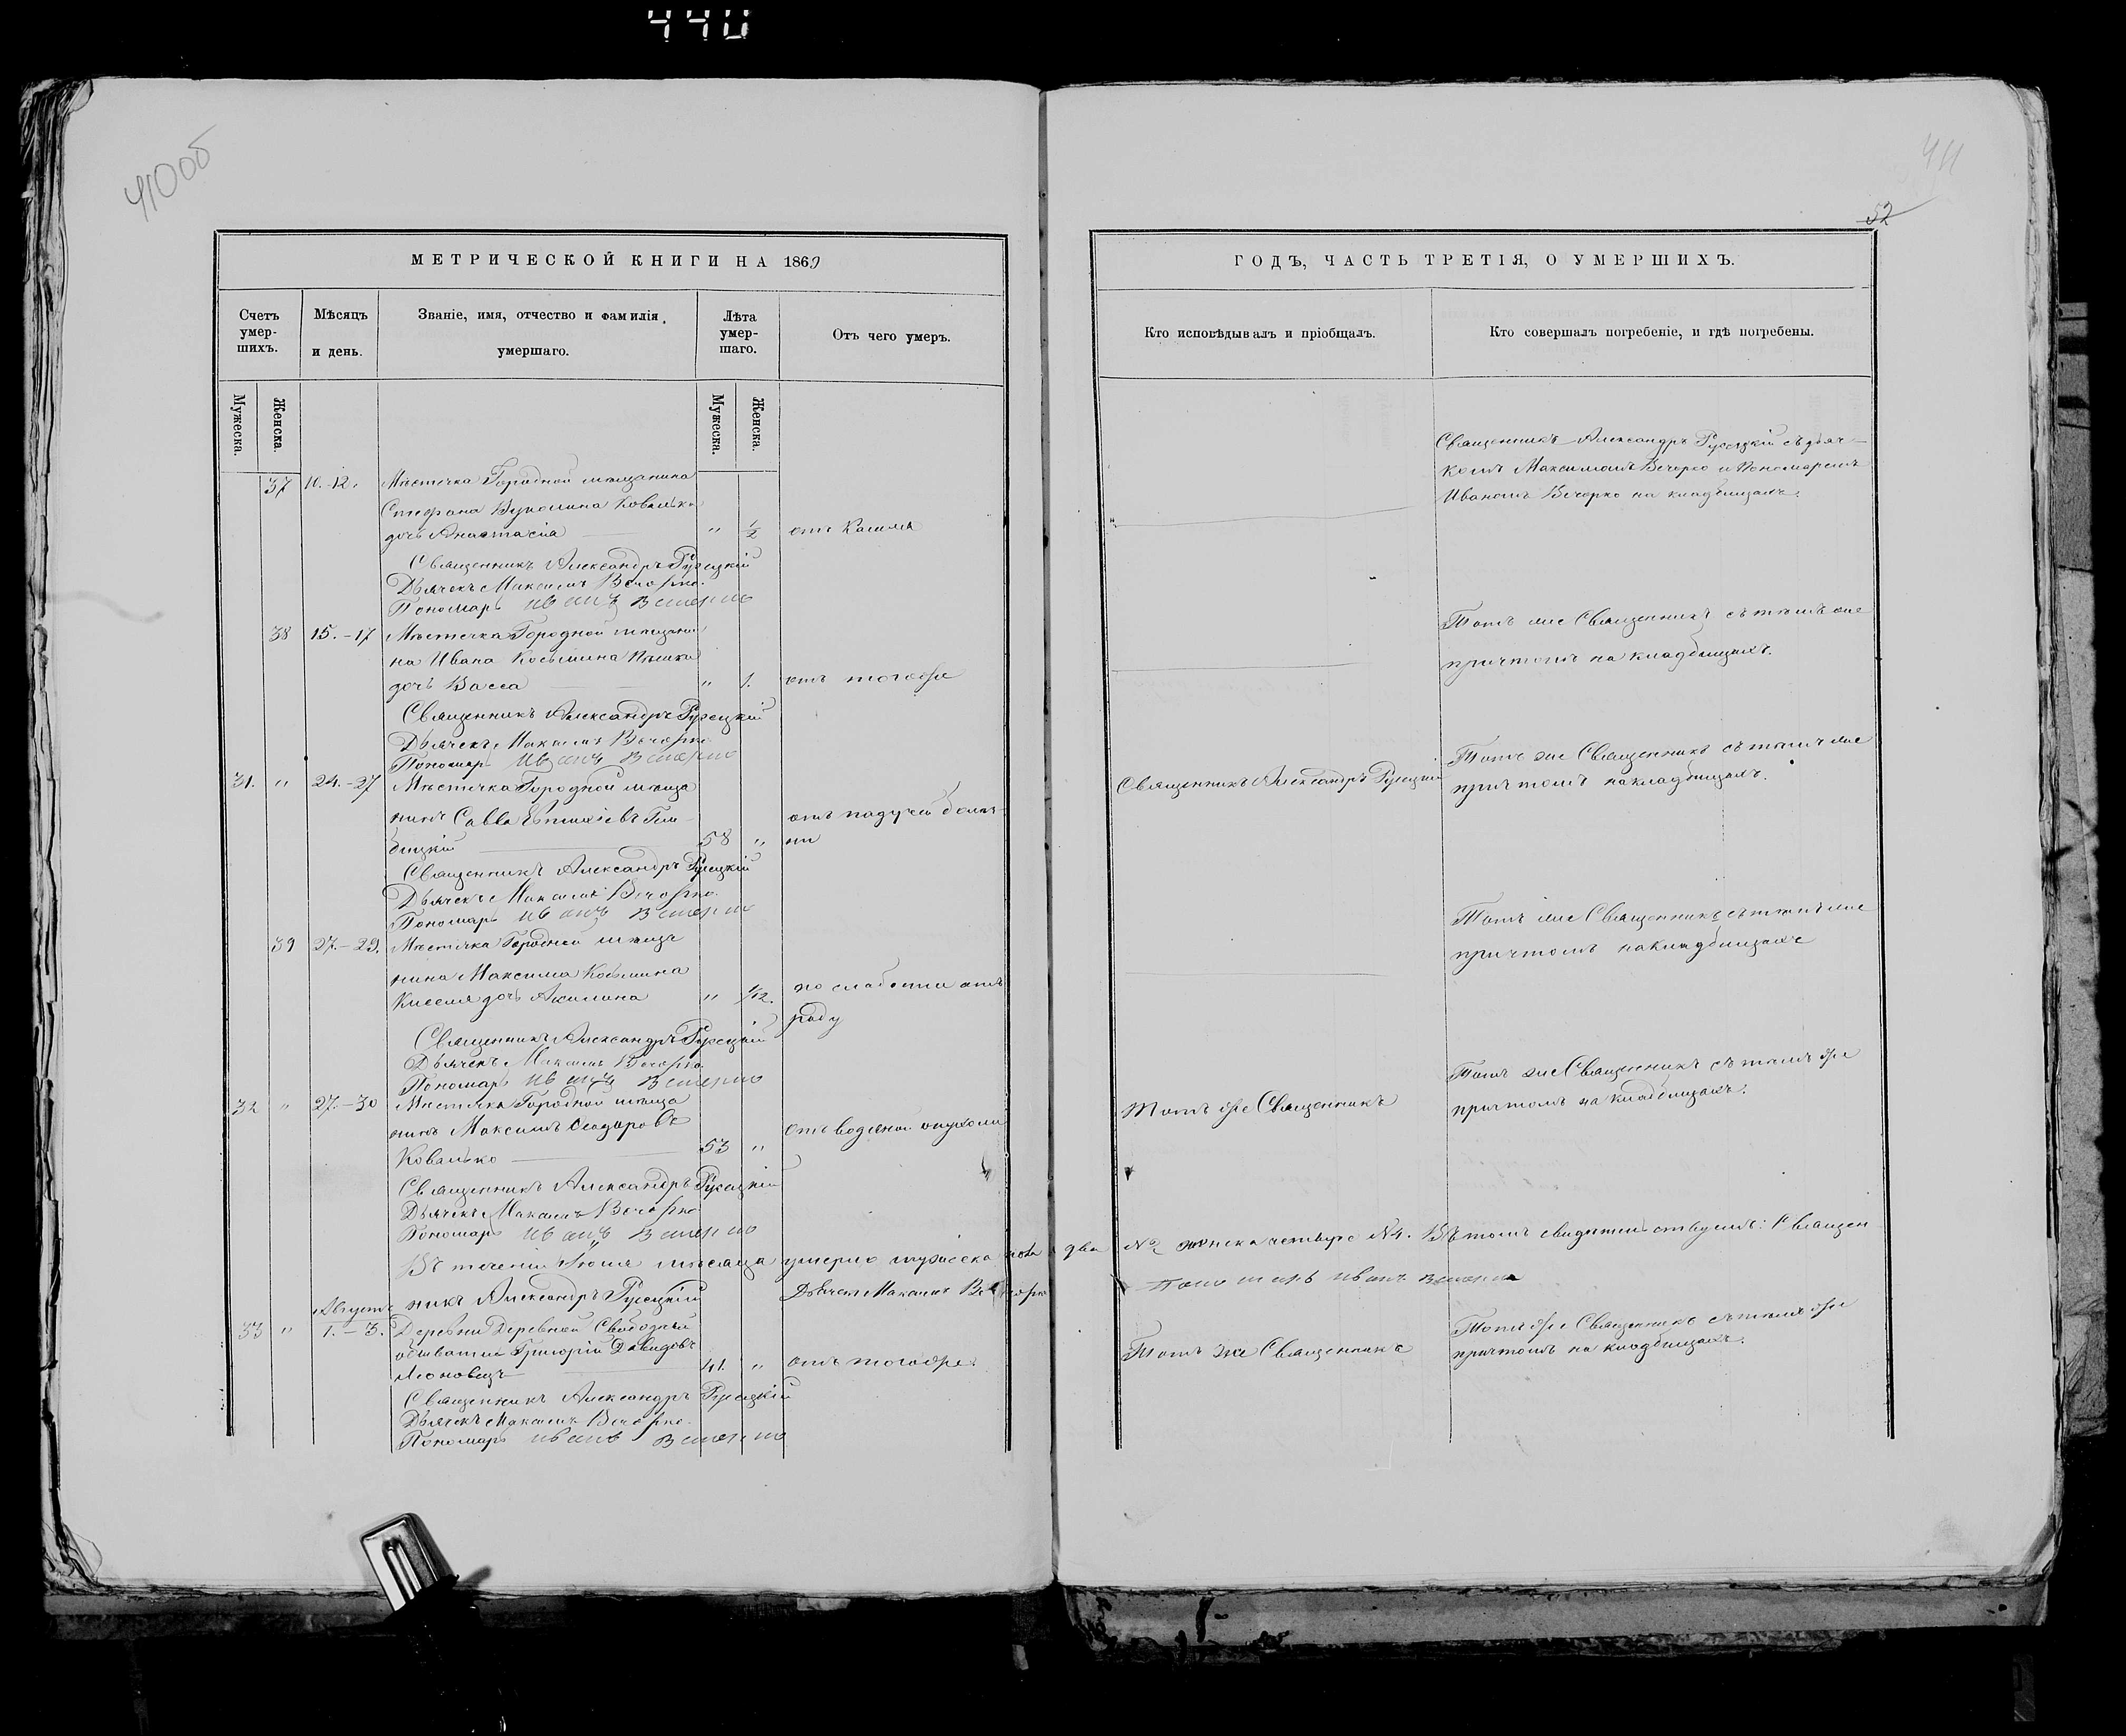 440
410об
411
52
МЕТРИЧЕСКОЙ КНИГИ НА 1869
ГОДЪ, ЧАСТЬ ТРЕТІЯ, О УМЕРШИХЪ.
Счетъ умер-
шихъ.
Мѣсяцъ
и день.
Званіе, имя, отчество и фамилія
умершаго.
Лѣта
умер-
шаго.
Отъ чего умеръ.
Кто исповѣдывалъ и пріобщалъ.
Кто совершалъ погребеніе, и гдѣ погребены.
Мужеска.
Женска.
Мужеска.
Женска.
37 10.-12. Мѣстечка Городной мѣщанина
Стефана Ковалько
дочь Анастасіа " 1/2 отъ Кашля
Священникъ Александръ Русецкій съ дьяч-
комъ Максимомъ Вечорко и Пономаремъ
Иваномъ Вечорко на кладбищахъ.
Священникъ Александръ Русецкій
Дьячекъ Максимъ Вечорко.
Пономарь Иванъ Вечерко
38 15.-17 Мѣстечка Городной мѣщани
на Ивана Косьмина
дочь Васса " 1. отъ тогоже
Тотъ же Священникъ съ тѣмъ же
причтомъ на кладбищахъ.
Священникъ Александръ Русецкій
Дьячекъ Максимъ Вечорко
Пономарь Иванъ Вечерко
31. " 24.-27 Мѣстечка Городной мѣща
нинъ Савва Евтихіевъ
58 " отъ падучей болѣз-
ни
Священникъ Александръ Русецкій
Тотъ же Священникъ съ тѣмъ же
причтомъ на кладбищахъ.
Священникъ Александръ Русецкій
Дьячекъ Максимъ Вечорко
Пономарь Иванъ Вечерко
39 27.-29. Мѣстечка Городной мѣща
нина Максима Косьмина
Киселя дочь Акилина " 1/12. по слабости отъ
роду
Тотъ же Священникъ съ тѣмъ же
причтомъ на кладбищахъ
Священникъ Александръ Русецкій
Дьячекъ Максимъ Вечорко.
Пономарь Иванъ Вечерко
32 " 27.-30 Мѣстечка Городной мѣща
нинъ Максимъ
Ковалько 53 " отъ водяной опухоли
Тотъ же Священникъ
Тотъ же Священникъ съ тѣмъ же
причтомъ на кладбищахъ.
Священникъ Александръ Русецкій
Дьячекъ Максимъ Вечорко
Пономарь Иванъ Вечерко
Въ теченіи Іюля мѣсяца умерло мужеска пола два № женска четыре №4. Въ томъ свидѣтельствуемъ: Священ-
никъ Александръ Русецкій Дьячекъ Максимъ Вечорко Пономарь Иванъ Вечерко
Августъ
33 " 1.-3. Деревни Деревной Свободный
обыватель Григорій Давидовъ
Леоновецъ 41. " отъ тогоже.
Тотъ же Священникъ
Тотъ же Священникъ съ тѣмъ же
причтомъ на кладбищахъ.
Священникъ Александръ Русецкій
Дьячекъ Максимъ Вечорко.
Пономарь Иванъ Вечерко